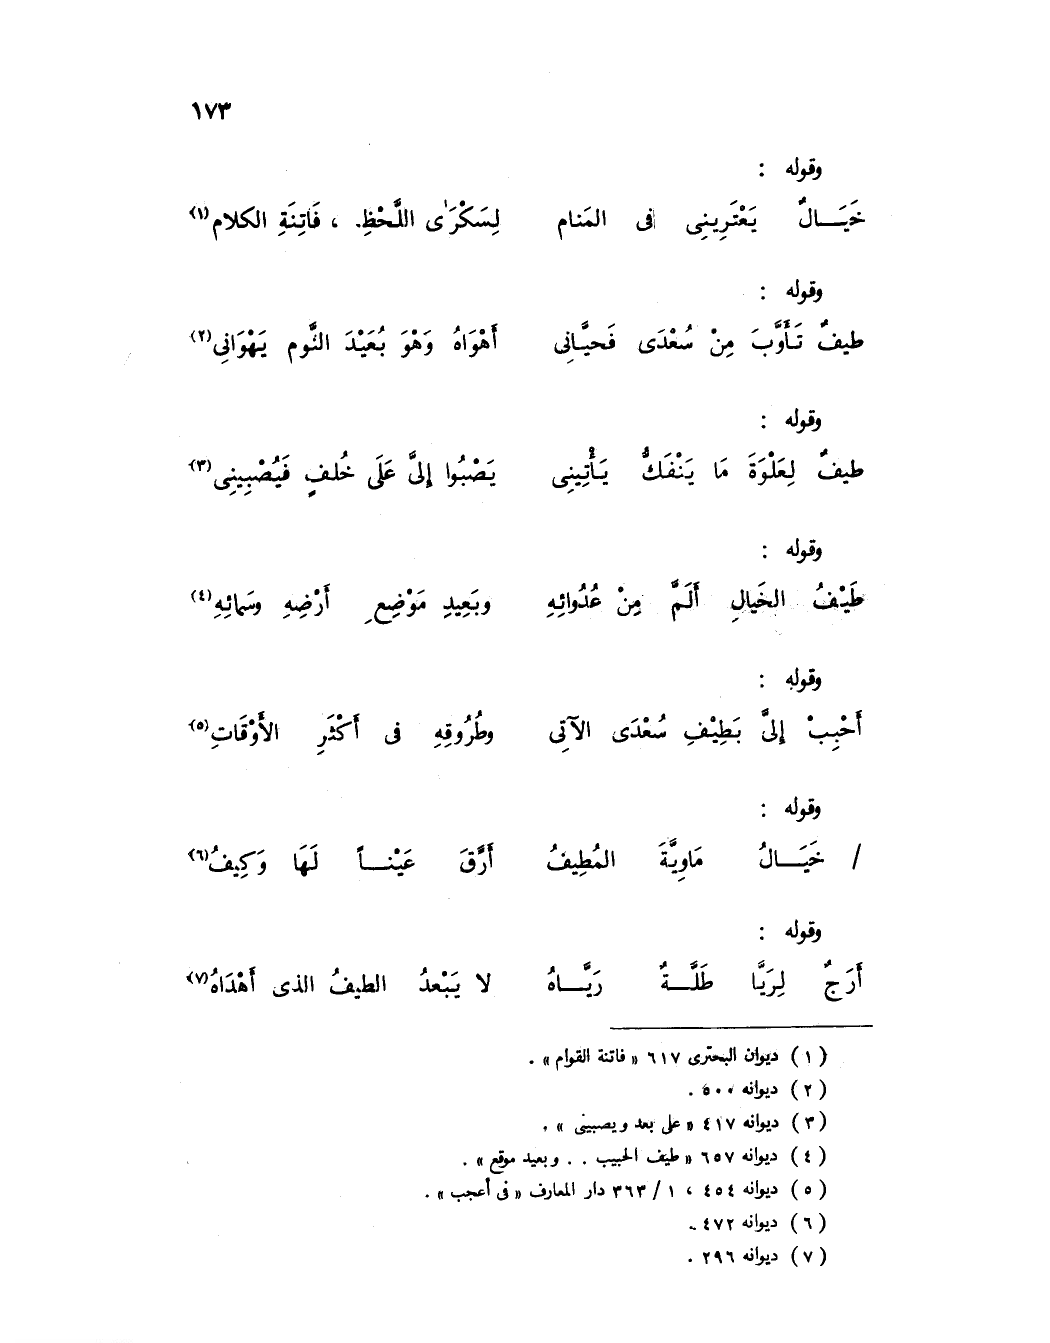 ١٧٣
وقوله :
خَيَــالٌ يَعْتَرِينِى فى المَنام لِسَكْرَى اللَّحْظِ. ، فَاتِنَةِ الكلام (١)
وقوله :
طيفٌ تَأَوَّبَ مِنْ سُعْدَى فَحيَّانِى أَهْوَاهُ وَهْوَ بُعَيْدَ النَّوم يَهْوَانِى (٢)
وقوله :
طيفٌ لِعَلْوَةَ مَا يَنْفَكُّ يَأْتِينِى يَصْبُوا إِلىَّ عَلَى خُلفٍ فَيُصْبِينِى (٣)
وقوله :
طَيْفُ الخَيالِ أَلَمَّ مِنْ عُدُوائِهِ وبَعِيدِ مَوْضِعِ أَرْضِهِ وسَمائِهِ (٤)
وقوله :
أَحْبِبْ إِلىَّ بَطِيْفِ سُعْدَى الآتِى وطُرُوقِهِ فى أَكْثَرِ الأَوْقَاتِ (٥)
وقوله :
/ خَيَــالُ مَاوِيَّةَ المُطِيفُ أَرَّقَ عَيْنــاً لَهَا وَكِيفُ (٦)
وقوله :
أَرَجٌ لِرَيَّا طَلَّــةٌ رَيَّــاهُ لا يَبْعدُ الطيفُ الذى أَهْدَاهُ (٧)
(١) ديوان البحترى ٦١٧ « فاتنة القوام » .
(٢) ديوانه ٥٠٠ .
(٣) ديوانه ٤١٧ « على بعد ويصبينى » .
(٤) ديوانه ٦٥٧ « طيف الحبيب . . وبعيد موقع » .
(٥) ديوانه ٤٥٤ ، ١ / ٣٦٣ دار المعارف « فى أعجب » .
(٦) ديوانه ٤٧٢ .
(٧) ديوانه ٢٩٦ .